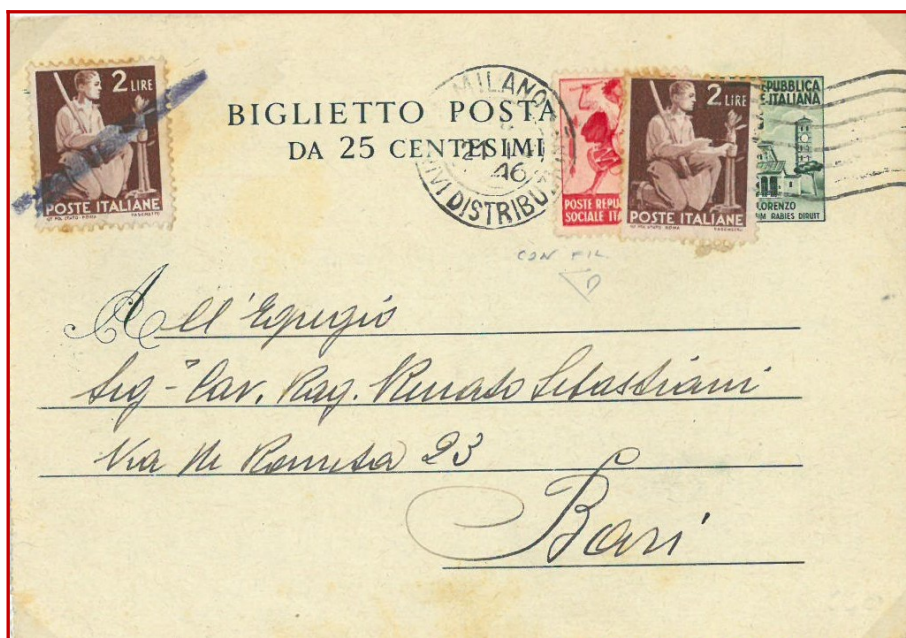 2 LIRE
POSTE ITALIANE
BIGLIETTO POSTA
DA 25 CENTESIMI
MILANO
21
46
DISTRIBU
POSTE REPU
SOCIALE ITA
2 LIRE
POSTE ITALIANE
PUBBLICA
ITALIANA
LORENZO
RABIES DIRUIT
CON FIL
All'Egregio
Sig. Cav. Rag. Renato Sebastiani
Via 23
Bari